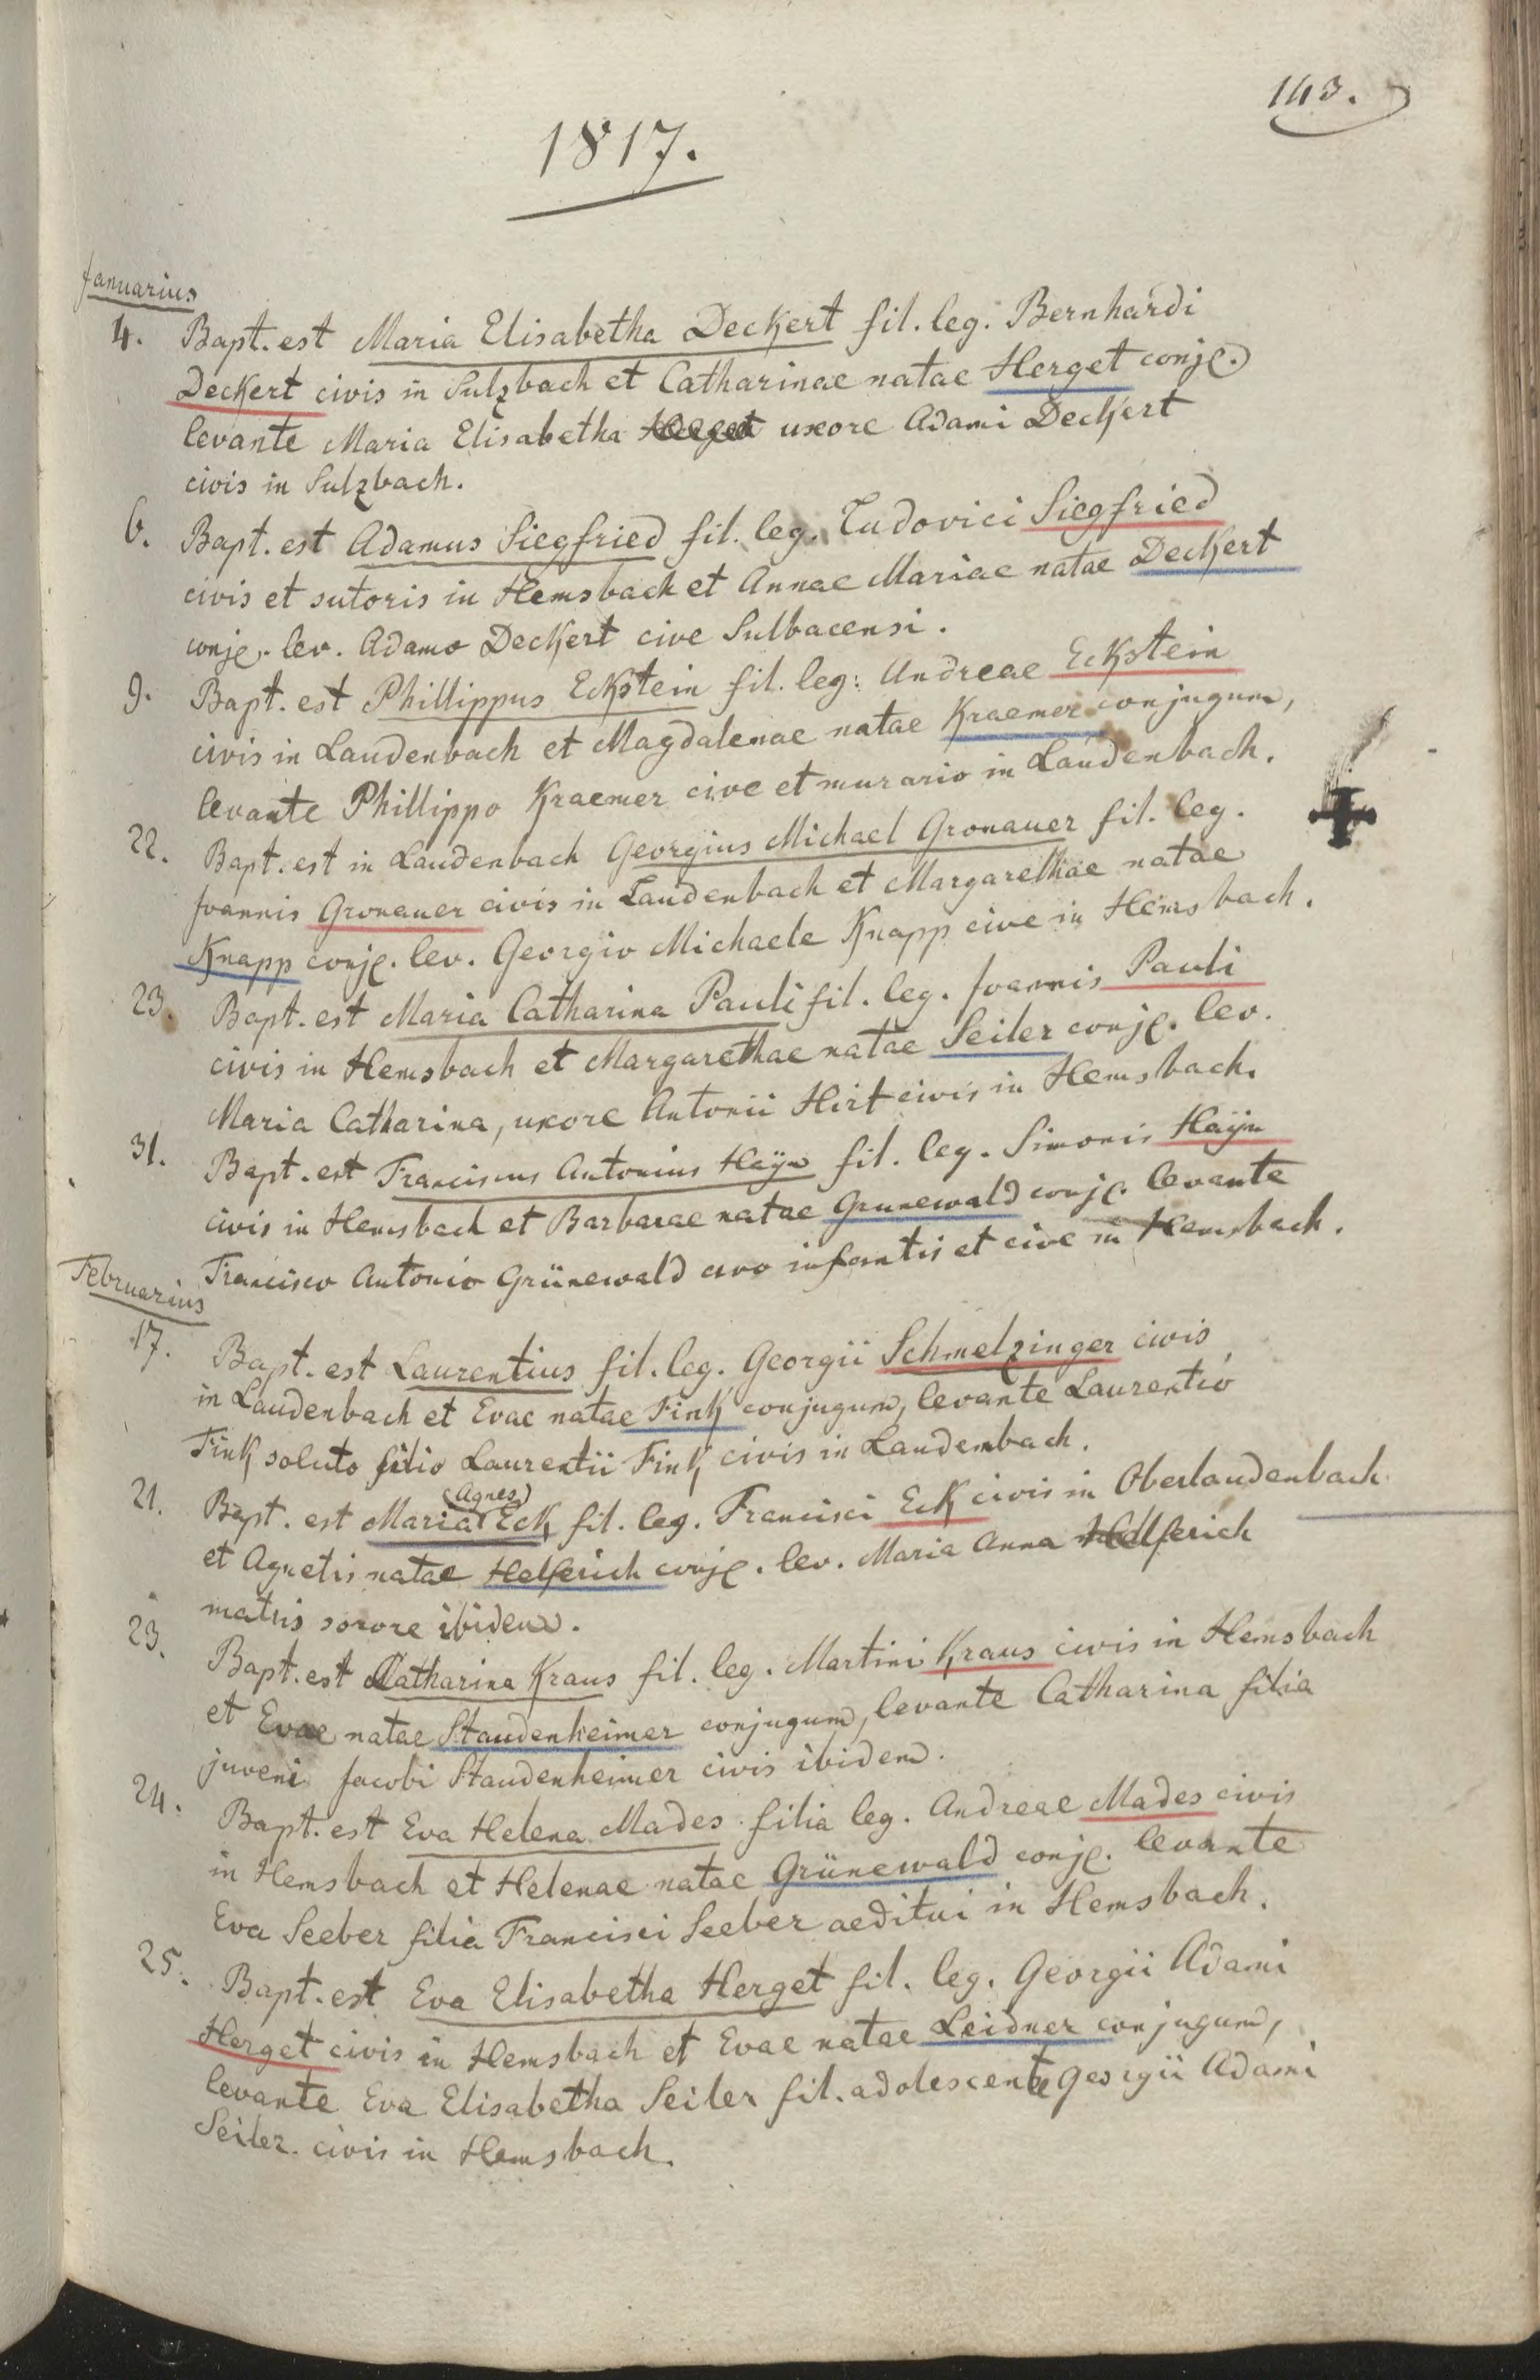 143.
1817.
Januarius
4. Bapt. est Maria Elisabetha Deckert fil. leg. Bernhardi
Deckert civis in Sulzbach et Catharinae natae Herget conjg.
levante Maria Elisabetha uxore Adami Deckert
civis in Sulzbach.
6. Bapt. est Adamus Siegfried fil. leg. Ludovici Siegfried
civis et sutoris in Hemsbach et Annae Mariae natae Deckert
conjg. lev. Adamo Deckert cive Sulbacensi.
9. Bapt. est Phillippus Eckstein fil. leg: Andreae Eckstein
civis in Laudenbach et Magdalenae natae Kraemer conjugum,
levante Phillippo Kraemer cive et murario in Laudenbach.
22. Bapt. est in Laudenbach Georgius Michael Gronauer fil. leg.
Joannis Gronauer civis in Laudenbach et Margarethae natae
Knapp conjg. lev. Georgio Michaele Knapp cive in Hemsbach.
23. Bapt. est Maria Catharina Pauli fil. leg. Joannis Pauli
civis in Hemsbach et Margarethae natae Seiler conjg. lev.
Maria Catharina, uxore Antonii Hirt civis in Hemsbach.
31. Bapt. est Franciscus Antonius Haÿn fil. leg. Simonis Haÿn
civis in Hemsbach et Barbarae natae Grunewald conjg. levante
Francisco Antonio Grünewald avo infantis et cive in Hemsbach.
Februarius
17. Bapt. est Laurentius fil. leg. Georgii Schmelzinger civis
in Laudenbach et Evae natae Fink conjugum, levante Laurentio
Fink soluto filio Laurentii Fink civis in Laudembach.
(Agnes)
21. Bapt. est Maria Eck fil. leg. Francisci Eck civis in Oberlaudenbach
et Agnetis natae Helferich conjg. lev. Maria Anna Helferich
matris sorore ibidem.
23. Bapt. est Catharina Kraus fil. leg. Martini Kraus civis in Hemsbach
et Evae natae Staudenheimer conjugum, levante Catharina filia
juveni Jacobi Staudenheimer civis ibidem.
24. Bapt. est Eva Helena Mades filia leg. Andreae Mades civis
in Hemsbach et Helenae natae Grünewald conjg. levante
Eva Seeber filia Francisci Seeber aeditui in Hemsbach.
25. Bapt. est Eva Elisabetha Herget fil. leg. Georgii Adami
Herget civis in Hemsbach et Evae natae Leidner conjugum,
levante Eva Elisabetha Seiler fil. adolescente Georgii Adami
Seiler civis in Hemsbach.